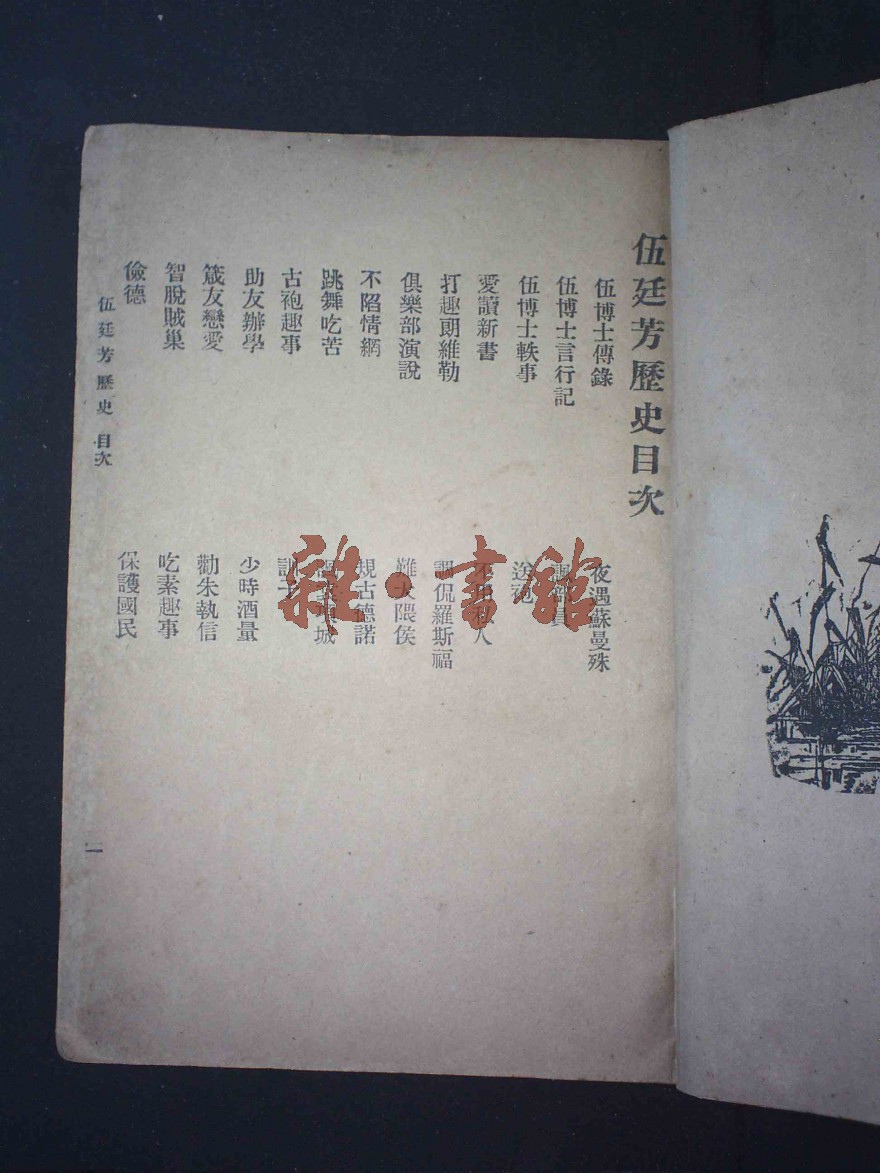 伍廷芳歷史目次
伍博士傳錄
伍博士言行記
伍博士軼事
愛讀新書
打趣朗維勒
俱樂部演說
不陷情網
跳舞吃苦
古袍趣事
助友辦學
箴友戀愛
智脫賊巢
儉德
夜遇蘇曼殊
員
人
調侃羅斯福
難大隈侯
規古德諾
城
少時酒量
勸朱執信
吃素趣事
保護國民
伍廷芳歷史 目次
一
雜·書館